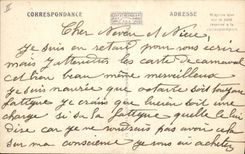 CORRESPONDANCE
ADRESSE
Cher Neveu et Nièce
Je suis en retard pour vous écrire
mais j'attendres les carte de carnaval
cet bien beau même merveilleux
je suis navrée que Octavte soit toujour
fattigue je crains que lucien soit une
charge si sa la fattigue quelle le lui
dise car je ne voudrais pas avoir cela
sur ma conscience je vous en achetez